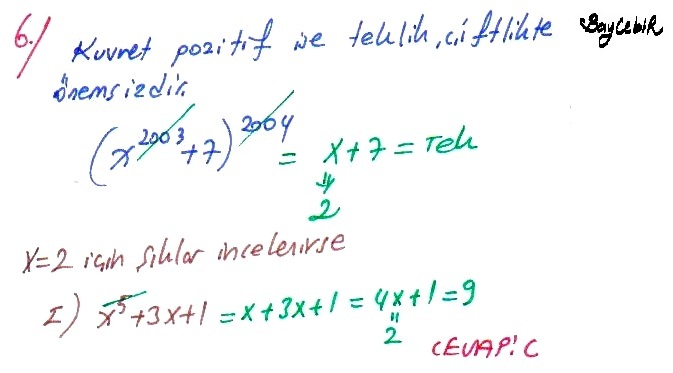 6.) Kuvvet pozitif ise teklik, çiftlikte BayCebiR
önemsizdir.
(x^2003+7)^2004 = x+7 = Tek
⇓
2
x=2 için şıklar incelenirse
I) x^5+3x+1 = x+3x+1 = 4x+1 = 9
"
2
CEVAP: C